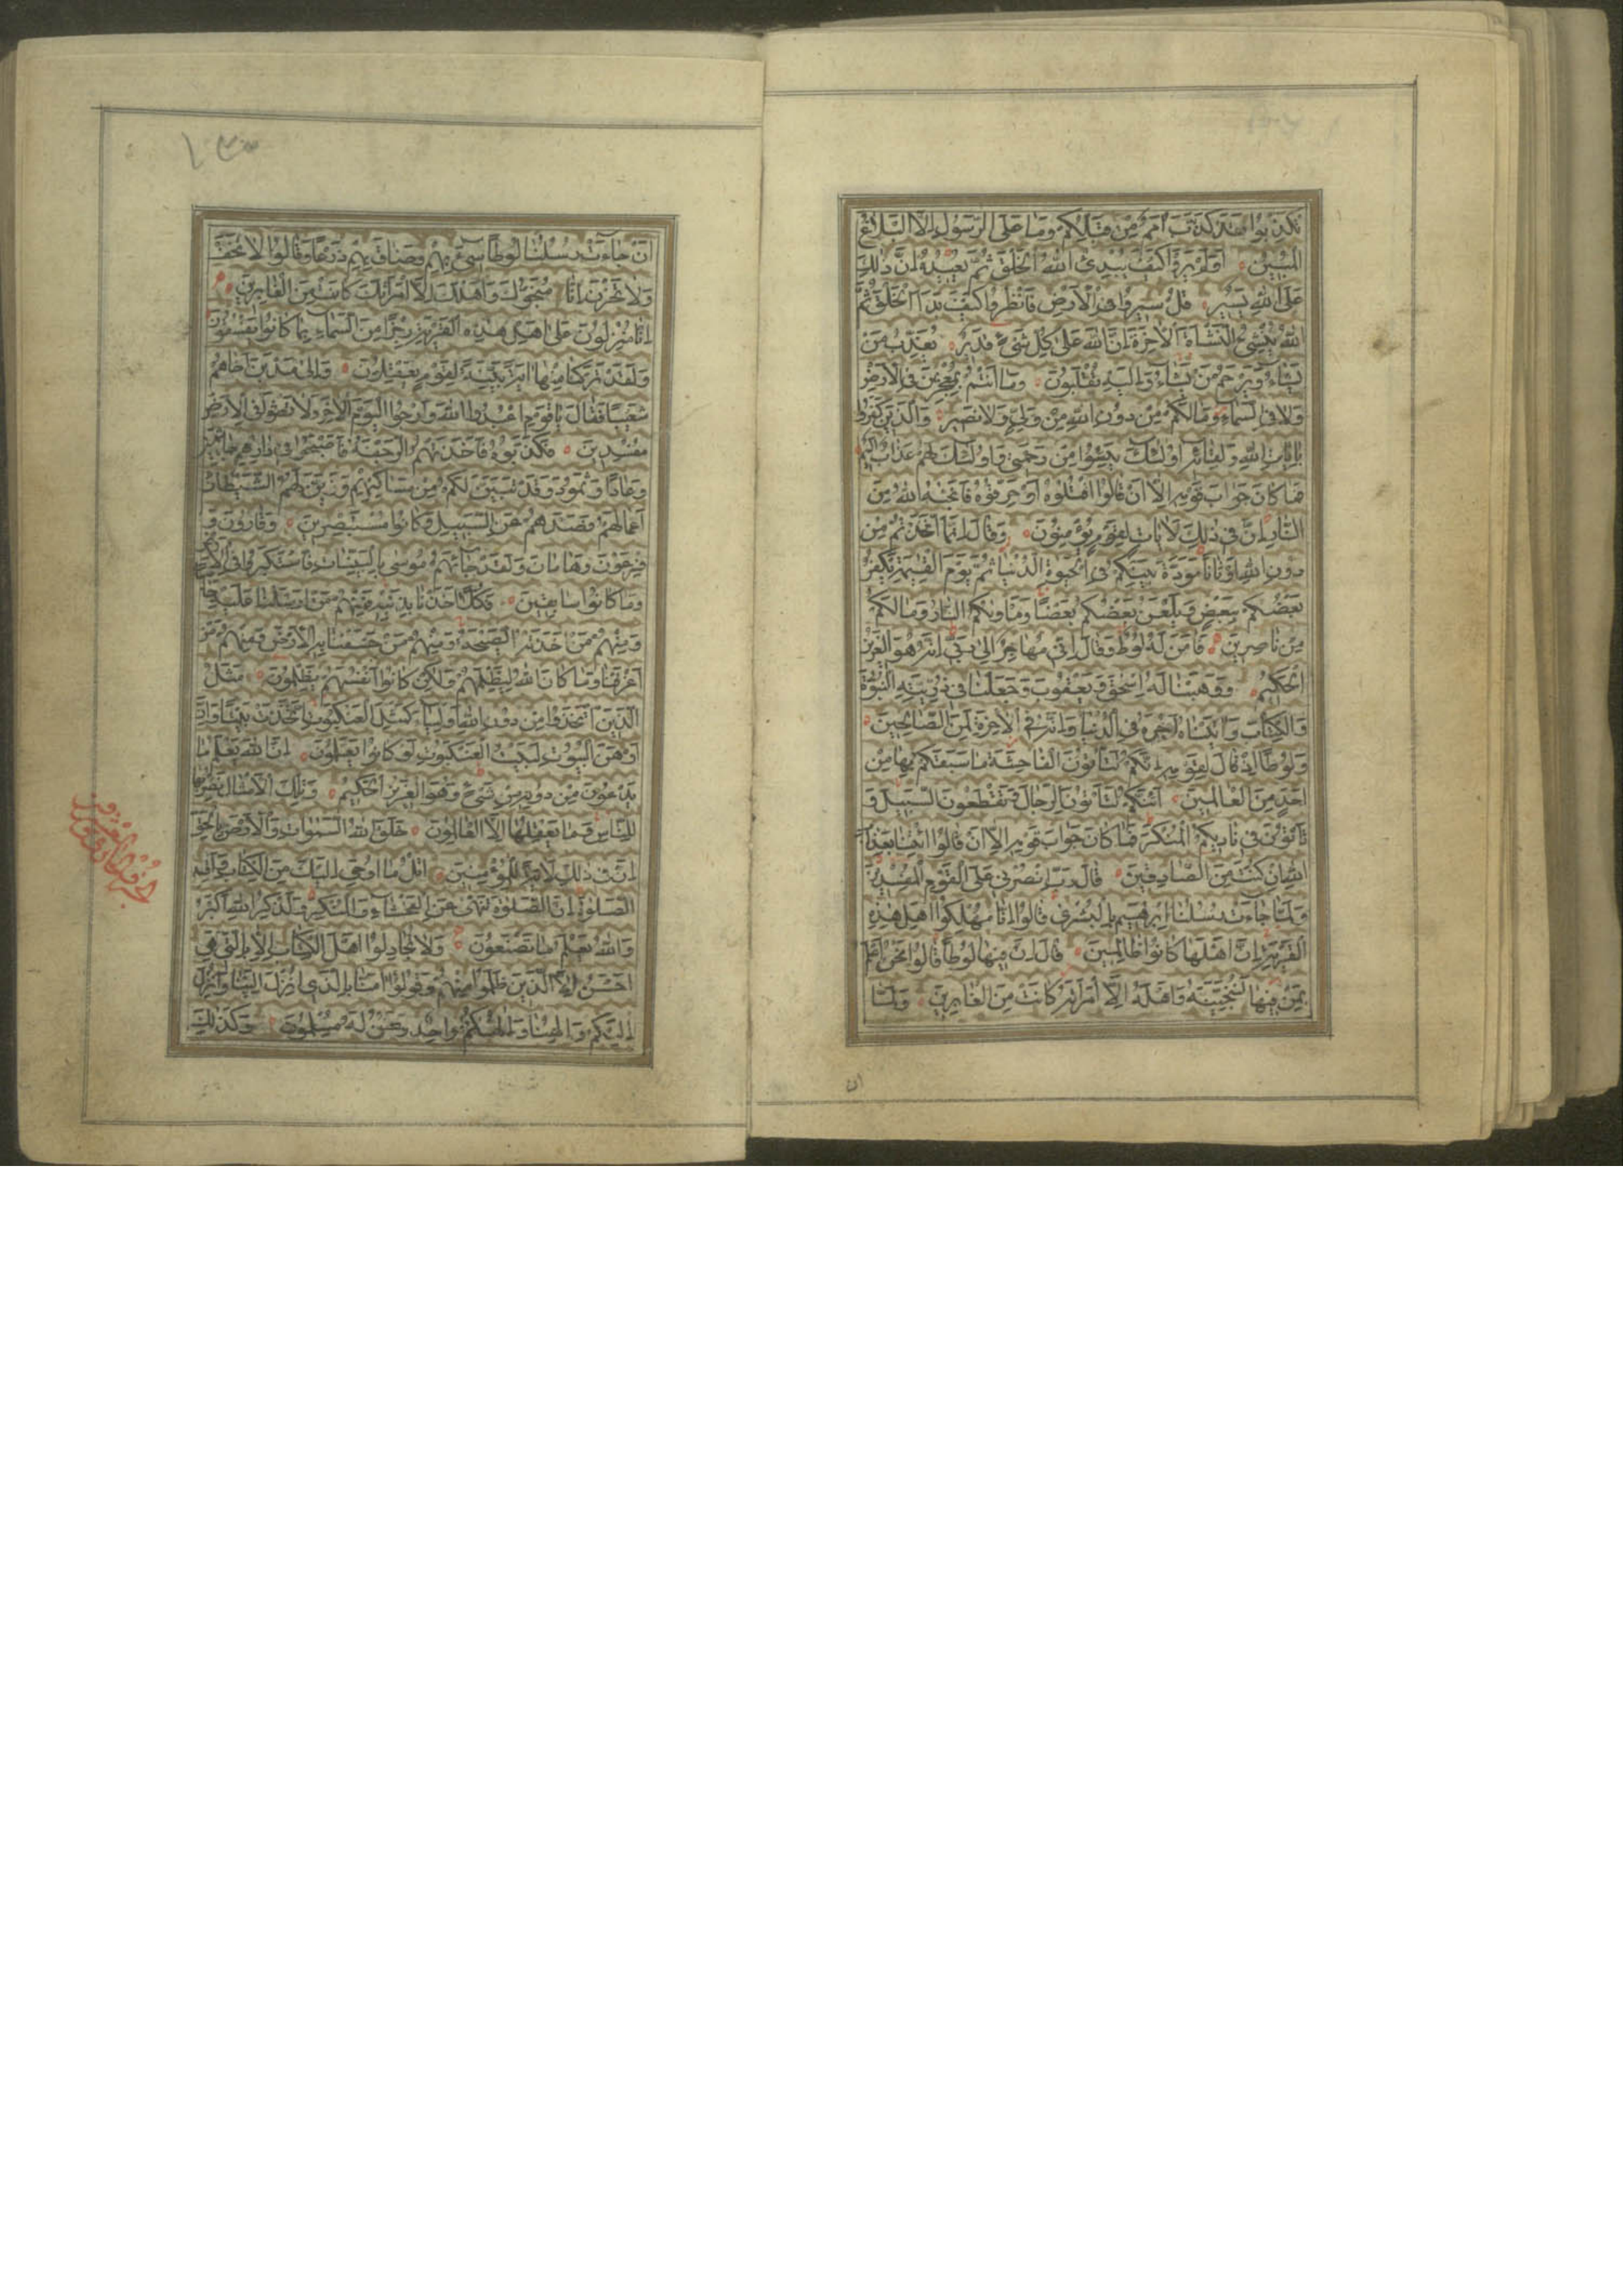 تُكَذِّبُوا فَقَدْ كَذَّبَ أُمَمٌ مِنْ قَبْلِكُمْ وَمَا عَلَى الرَّسُولِ إِلَّا الْبَلَاغُ
الْمُبِينُ أَوَلَمْ يَرَوْا كَيْفَ يُبْدِئُ اللهُ الْخَلْقَ ثُمَّ يُعِيدُهُ إِنَّ ذٰلِكَ
عَلَى اللهِ يَسِيرٌ قُلْ سِيرُوا فِي الْأَرْضِ فَانْظُرُوا كَيْفَ بَدَأَ الْخَلْقَ ثُمَّ
اللهُ يُنْشِئُ النَّشْأَةَ الْآخِرَةَ إِنَّ اللهَ عَلَى كُلِّ شَيْءٍ قَدِيرٌ يُعَذِّبُ مَنْ
يَشَاءُ وَيَرْحَمُ مَنْ يَشَاءُ وَإِلَيْهِ تُقْلَبُونَ وَمَا أَنْتُمْ بِمُعْجِزِينَ فِي الْأَرْضِ
وَلَا فِي السَّمَاءِ وَمَا لَكُمْ مِنْ دُونِ اللهِ مِنْ وَلِيٍّ وَلَا نَصِيرٍ وَالَّذِينَ كَفَرُوا
بِآيَاتِ اللهِ وَلِقَائِهِ أُولٰئِكَ يَئِسُوا مِنْ رَحْمَتِي وَأُولٰئِكَ لَهُمْ عَذَابٌ أَلِيمٌ
فَمَا كَانَ جَوَابَ قَوْمِهِ إِلَّا أَنْ قَالُوا اقْتُلُوهُ أَوْ حَرِّقُوهُ فَأَنْجٰهُ اللهُ مِنَ
النَّارِ إِنَّ فِي ذٰلِكَ لَآيَاتٍ لِقَوْمٍ يُؤْمِنُونَ وَقَالَ إِنَّمَا اتَّخَذْتُمْ مِنْ
دُونِ اللهِ أَوْثَانًا مَوَدَّةَ بَيْنِكُمْ فِي الْحَيٰوةِ الدُّنْيَا ثُمَّ يَوْمَ الْقِيٰمَةِ يَكْفُرُ
بَعْضُكُمْ بِبَعْضٍ وَيَلْعَنُ بَعْضُكُمْ بَعْضًا وَمَأْوٰيكُمُ النَّارُ وَمَا لَكُمْ
مِنْ نَاصِرِينَ فَآمَنَ لَهُ لُوطٌ وَقَالَ إِنِّي مُهَاجِرٌ إِلَى رَبِّي إِنَّهُ هُوَ الْعَزِيزُ
الْحَكِيمُ وَوَهَبْنَا لَهُ إِسْحٰقَ وَيَعْقُوبَ وَجَعَلْنَا فِي ذُرِّيَّتِهِ النُّبُوَّةَ
وَالْكِتَابَ وَآتَيْنَاهُ أَجْرَهُ فِي الدُّنْيَا وَإِنَّهُ فِي الْآخِرَةِ لَمِنَ الصَّالِحِينَ
وَلُوطًا إِذْ قَالَ لِقَوْمِهِ إِنَّكُمْ لَتَأْتُونَ الْفَاحِشَةَ مَا سَبَقَكُمْ بِهَا مِنْ
أَحَدٍ مِنَ الْعَالَمِينَ أَئِنَّكُمْ لَتَأْتُونَ الرِّجَالَ وَتَقْطَعُونَ السَّبِيلَ وَ
تَأْتُونَ فِي نَادِيكُمُ الْمُنْكَرَ فَمَا كَانَ جَوَابَ قَوْمِهِ إِلَّا أَنْ قَالُوا ائْتِنَا بِعَذَابِ
اللهِ إِنْ كُنْتَ مِنَ الصَّادِقِينَ قَالَ رَبِّ انْصُرْنِي عَلَى الْقَوْمِ الْمُفْسِدِينَ
وَلَمَّا جَاءَتْ رُسُلُنَا إِبْرٰهِيمَ بِالْبُشْرٰى قَالُوا إِنَّا مُهْلِكُوا أَهْلِ هٰذِهِ
الْقَرْيَةِ إِنَّ أَهْلَهَا كَانُوا ظَالِمِينَ قَالَ إِنَّ فِيهَا لُوطًا قَالُوا نَحْنُ أَعْلَمُ
بِمَنْ فِيهَا لَنُنَجِّيَنَّهُ وَأَهْلَهُ إِلَّا امْرَأَتَهُ كَانَتْ مِنَ الْغَابِرِينَ وَلَمَّا
ان
أَنْ جَاءَتْ رُسُلُنَا لُوطًا سِيءَ بِهِمْ وَضَاقَ بِهِمْ ذَرْعًا وَقَالُوا لَا تَخَفْ
وَلَا تَحْزَنْ إِنَّا مُنَجُّوكَ وَأَهْلَكَ إِلَّا امْرَأَتَكَ كَانَتْ مِنَ الْغَابِرِينَ
إِنَّا مُنْزِلُونَ عَلَى أَهْلِ هٰذِهِ الْقَرْيَةِ رِجْزًا مِنَ السَّمَاءِ بِمَا كَانُوا يَفْسُقُونَ
وَلَقَدْ تَرَكْنَا مِنْهَا آيَةً بَيِّنَةً لِقَوْمٍ يَعْقِلُونَ وَإِلَى مَدْيَنَ أَخَاهُمْ
شُعَيْبًا فَقَالَ يَا قَوْمِ اعْبُدُوا اللهَ وَارْجُوا الْيَوْمَ الْآخِرَ وَلَا تَعْثَوْا فِي الْأَرْضِ
مُفْسِدِينَ فَكَذَّبُوهُ فَأَخَذَتْهُمُ الرَّجْفَةُ فَأَصْبَحُوا فِي دَارِهِمْ جَاثِمِينَ
وَعَادًا وَثَمُودَ وَقَدْ تَبَيَّنَ لَكُمْ مِنْ مَسَاكِنِهِمْ وَزَيَّنَ لَهُمُ الشَّيْطَانُ
أَعْمَالَهُمْ فَصَدَّهُمْ عَنِ السَّبِيلِ وَكَانُوا مُسْتَبْصِرِينَ وَقَارُونَ وَ
فِرْعَوْنَ وَهَامَانَ وَلَقَدْ جَائَهُمْ مُوسٰى بِالْبَيِّنَاتِ فَاسْتَكْبَرُوا فِي الْأَرْضِ
وَمَا كَانُوا سَابِقِينَ فَكُلًّا أَخَذْنَا بِذَنْبِهِ فَمِنْهُمْ مَنْ أَرْسَلْنَا عَلَيْهِ حَاصِبًا
وَمِنْهُمْ مَنْ أَخَذَتْهُ الصَّيْحَةُ وَمِنْهُمْ مَنْ خَسَفْنَا بِهِ الْأَرْضَ وَمِنْهُمْ مَنْ
أَغْرَقْنَا وَمَا كَانَ اللهُ لِيَظْلِمَهُمْ وَلٰكِنْ كَانُوا أَنْفُسَهُمْ يَظْلِمُونَ مَثَلُ
الَّذِينَ اتَّخَذُوا مِنْ دُونِ اللهِ أَوْلِيَاءَ كَمَثَلِ الْعَنْكَبُوتِ اتَّخَذَتْ بَيْتًا وَإِنَّ
أَوْهَنَ الْبُيُوتِ لَبَيْتُ الْعَنْكَبُوتِ لَوْ كَانُوا يَعْلَمُونَ إِنَّ اللهَ يَعْلَمُ مَا
يَدْعُونَ مِنْ دُونِهِ مِنْ شَيْءٍ وَهُوَ الْعَزِيزُ الْحَكِيمُ وَتِلْكَ الْأَمْثَالُ نَضْرِبُهَا
لِلنَّاسِ وَمَا يَعْقِلُهَا إِلَّا الْعَالِمُونَ خَلَقَ اللهُ السَّمٰوَاتِ وَالْأَرْضَ بِالْحَقِّ
إِنَّ فِي ذٰلِكَ لَآيَةً لِلْمُؤْمِنِينَ اتْلُ مَا أُوحِيَ إِلَيْكَ مِنَ الْكِتَابِ وَأَقِمِ
الصَّلٰوةَ إِنَّ الصَّلٰوةَ تَنْهٰى عَنِ الْفَحْشَاءِ وَالْمُنْكَرِ وَلَذِكْرُ اللهِ أَكْبَرُ
وَاللهُ يَعْلَمُ مَا تَصْنَعُونَ وَلَا تُجَادِلُوا أَهْلَ الْكِتَابِ إِلَّا بِالَّتِي هِيَ
أَحْسَنُ إِلَّا الَّذِينَ ظَلَمُوا مِنْهُمْ وَقُولُوا آمَنَّا بِالَّذِي أُنْزِلَ إِلَيْنَا وَأُنْزِلَ
إِلَيْكُمْ وَإِلٰهُنَا وَإِلٰهُكُمْ وَاحِدٌ وَنَحْنُ لَهُ مُسْلِمُونَ وَكَذٰلِكَ